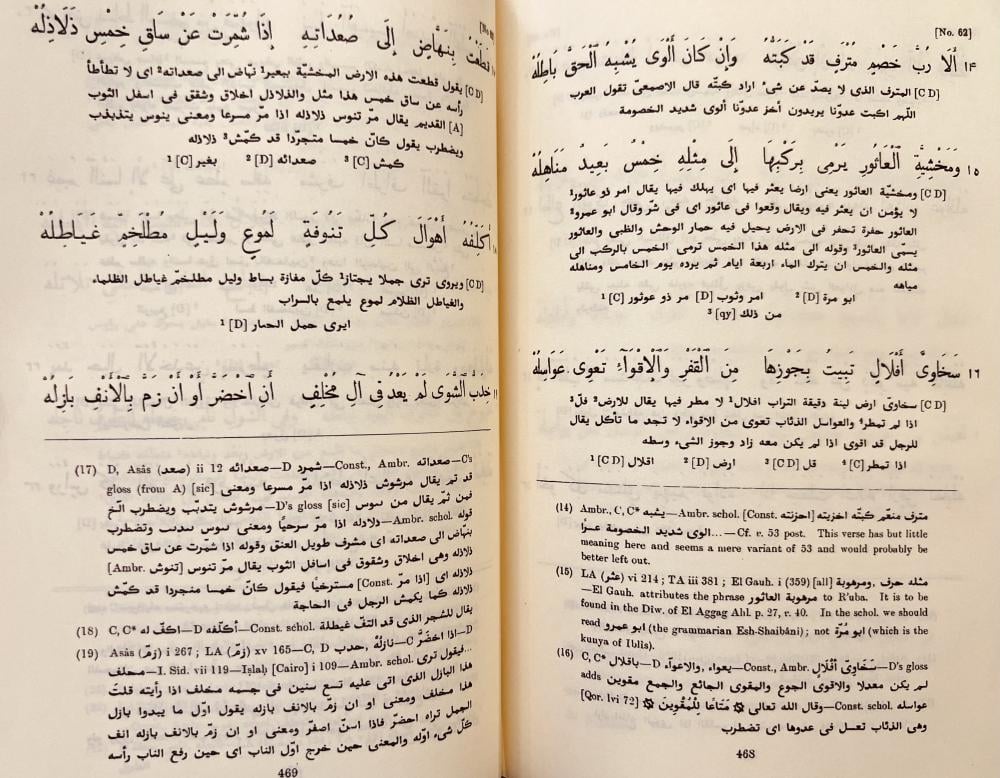 [No. 62]
١۴ أَلَا رُبَّ خَصْمٍ مُتْرَفٍ قَدْ كَبَتُّهُ وَإِنْ كَانَ أَلْوَى يُشْبِهُ ٱلْحَقَّ بَاطِلُهْ
[C D] المترف الذى لا يصدّ عن شىء اراد كبتّه قال الاصمعىّ تقول العرب
اللّهم اكبت عدوّنا يريدون أخز عدوّنا ألوى شديد الخصومة
١٥ وَمَخْشِيَّةِ ٱلْعَاثُورِ يَرْمِى بِرَكْبِهَا إِلَى مِثْلِهِ خِمْسٌ بَعِيدٌ مَنَاهِلُهْ
[C D] ومخشيّة العاثور يعنى ارضا يعثر فيها اى يهلك فيها يقال امر ذو عاثور¹
لا يؤمن ان يعثر فيه ويقال وقعوا فى عاثور اى فى شرّ وقال ابو عمرو²
العاثور حفرة تحفر فى الارض يحيل فيه حمار الوحش والظبى والعاثور
يسمّى العاثور³ وقوله الى مثله هذا الخمس ترمى الخمس بالركب الى
مثله والخمس ان يترك الماء اربعة ايام ثم يرده يوم الخامس ومناهله
مياهه
ابو مرة [D] ² امر وثوب [D] مر ذو عوثور [C] ¹
من ذلك [qy] ³
١٦ سَخَاوِىَّ أَفْلَالٍ تَبِيتُ بِجَوْزِهَا مِنَ ٱلْقَفْرِ وَٱلْإِقْوَآءِ تَعْوِى عَوَاسِلُهْ
[C D] سخاوىّ ارض لينة دقيقة التراب افلال¹ لا مطر فيها يقال للارض² فلّ³
اذا لم تمطر⁴ والعواسل الذئاب تعوى من الاقواء لا تجد ما تأكل يقال
للرجل قد اقوى اذا لم يكن معه زاد وجوز الشىء وسطه
اذا تمطر [C] ⁴ قل [C D] ³ ارض [D] ² اقلال [C D] ¹
(14) Ambr., C, C* مترف منعّم كبتّه اخزيته [احزنته .Const] .Ambr. schol—يشبه
الوى شديد الخصومة عسرًا...—Cf. v. 53 post. This verse has but little
meaning here and seems a mere variant of 53 and would probably be
better left out.
(15) LA (عثر) vi 214 ; TA iii 381 ; El Gauh. i (359) [all] مثله حرف .ومرهوبة
—El Gauh. attributes the phrase مرهوبة العاثور to R'uba. It is to be
found in the Diw. of El Aggag Ahl. p. 27, v. 40. In the schol. we should
read ابو عمرو (the grammarian Esh-Shaibâni); not ابو مُرّة (which is the
kunya of Iblis).
(16) C, C* باقلال—D يعواء ,والاعوآء—Const., Ambr. سُخَاوِىّ أَفْلَالٍ—D's gloss
adds لم يكن معدلا والاقوى الجوع والمقوى الجائع والجمع مقوين
[Qor. lvi 72] عواسله Const. schol.—وقال الله تعالى ۞ مَتَاعًا لِلْمُقْوِينَ ۞
وهى الذئاب تعسل فى عدوها اى تضطرب
468
قَطَعْتُ بِنَهَّاضٍ إِلَى صُعُدَاتِهِ إِذَا شُمِّرَتْ عَنْ سَاقِ خِمْسٍ ذَلَاذِلُهْ
[C D] يقول قطعت هذه الارض المخشيّة ببعير¹ نهّاض الى صعداته² اى لا تطأطأ
رأسه عن ساق خمس هذا مثل والذلاذل اخلاق وشقق فى اسفل الثوب
[A] القديم يقال مرّ تنوس ذلاذله اذا مرّ مسرعا ومعنى ينوس يتذبذب
ويضطرب يقول كانّ خمسا متجردا قد كمّش³ ذلاذله
كمش [C] ³ صعدائه [D] ² بغير [C] ¹
أُكَلِّفُهُ أَهْوَالَ كُلِّ تَنُوفَةٍ لَمُوعٍ وَلَيْلٍ مُطْلَخِمٍّ غَيَاطِلُهْ
[C D] ويروى ترى جملا يجتاز¹ كلّ مفازة بساط وليل مطلخمّ غياطل الظلماء
والغياطل الظلام لموع يلمع بالسراب
ايرى حمل الحبار [D] ¹
خِدَبَّ ٱلشَّوَى لَمْ يَعْدُ فِى آلِ مُخْلِفٍ أَنِ ٱخْضَرَّ أَوْ أَنْ زَمَّ بِٱلْأَنْفِ بَازِلُهْ
(17) D, Asâs (صعد) ii 12 صعدائه—D شمرد—Const., Ambr. صعداته—C's
gloss (from A) [sic] قد تم يقال مرشوش ذلاذله اذا مرّ مسرعا ومعنى
مرشوش يتدبب ويضطرب الخ—D's gloss [sic] فمن ثم يقال من
قوله Ambr. schol.—دلادله اذا مرّ سرحيًا ومعنى ينوس وتضطرب
بنهّاض الى صعداته اى مشرف طويل العنق وقوله اذا شمّرت عن ساق خمس
ذلاذله وهى اخلاق وشقوق فى اسافل الثوب يقال مرّ تنوس [تنوش .Ambr]
ذلاذله اى [اذا مرّ Const.] مسترخيًا فيقول كانّ خمسا منجردا قد كمّش
ذلاذله كما يكمش الرجل فى الحاجة
(18) C, C* اكفّ له—D أكلّفه—Const. schol. يقال للشجر الذى قد التفّ غيطلة
(19) Asâs (زمّ) i 267 ; LA (زمّ) xv 165—C, D حدب ,نازلُهْ—C اذا اخضرّ—D
محلف—I. Sid. vii 119—Iṣlaḥ [Cairo] i 109—Ambr. schol. فيقول ترى...
هذا البازل الذى اتى عليه تسع سنين فى جسمه مخلف اذا رأيته قلت
هذا مخلف ومعنى او ان زمّ بالانف بازله يقول اوّل ما يبدوا بازل
الجمل تراه احضرّ فاذا اسنّ اصفرّ ومعنى او ان زمّ بالانف بازله انف
كلّ شىء اوّله والمعنى حين خرج اوّل الناب اى حين رفع الناب رأسه
469